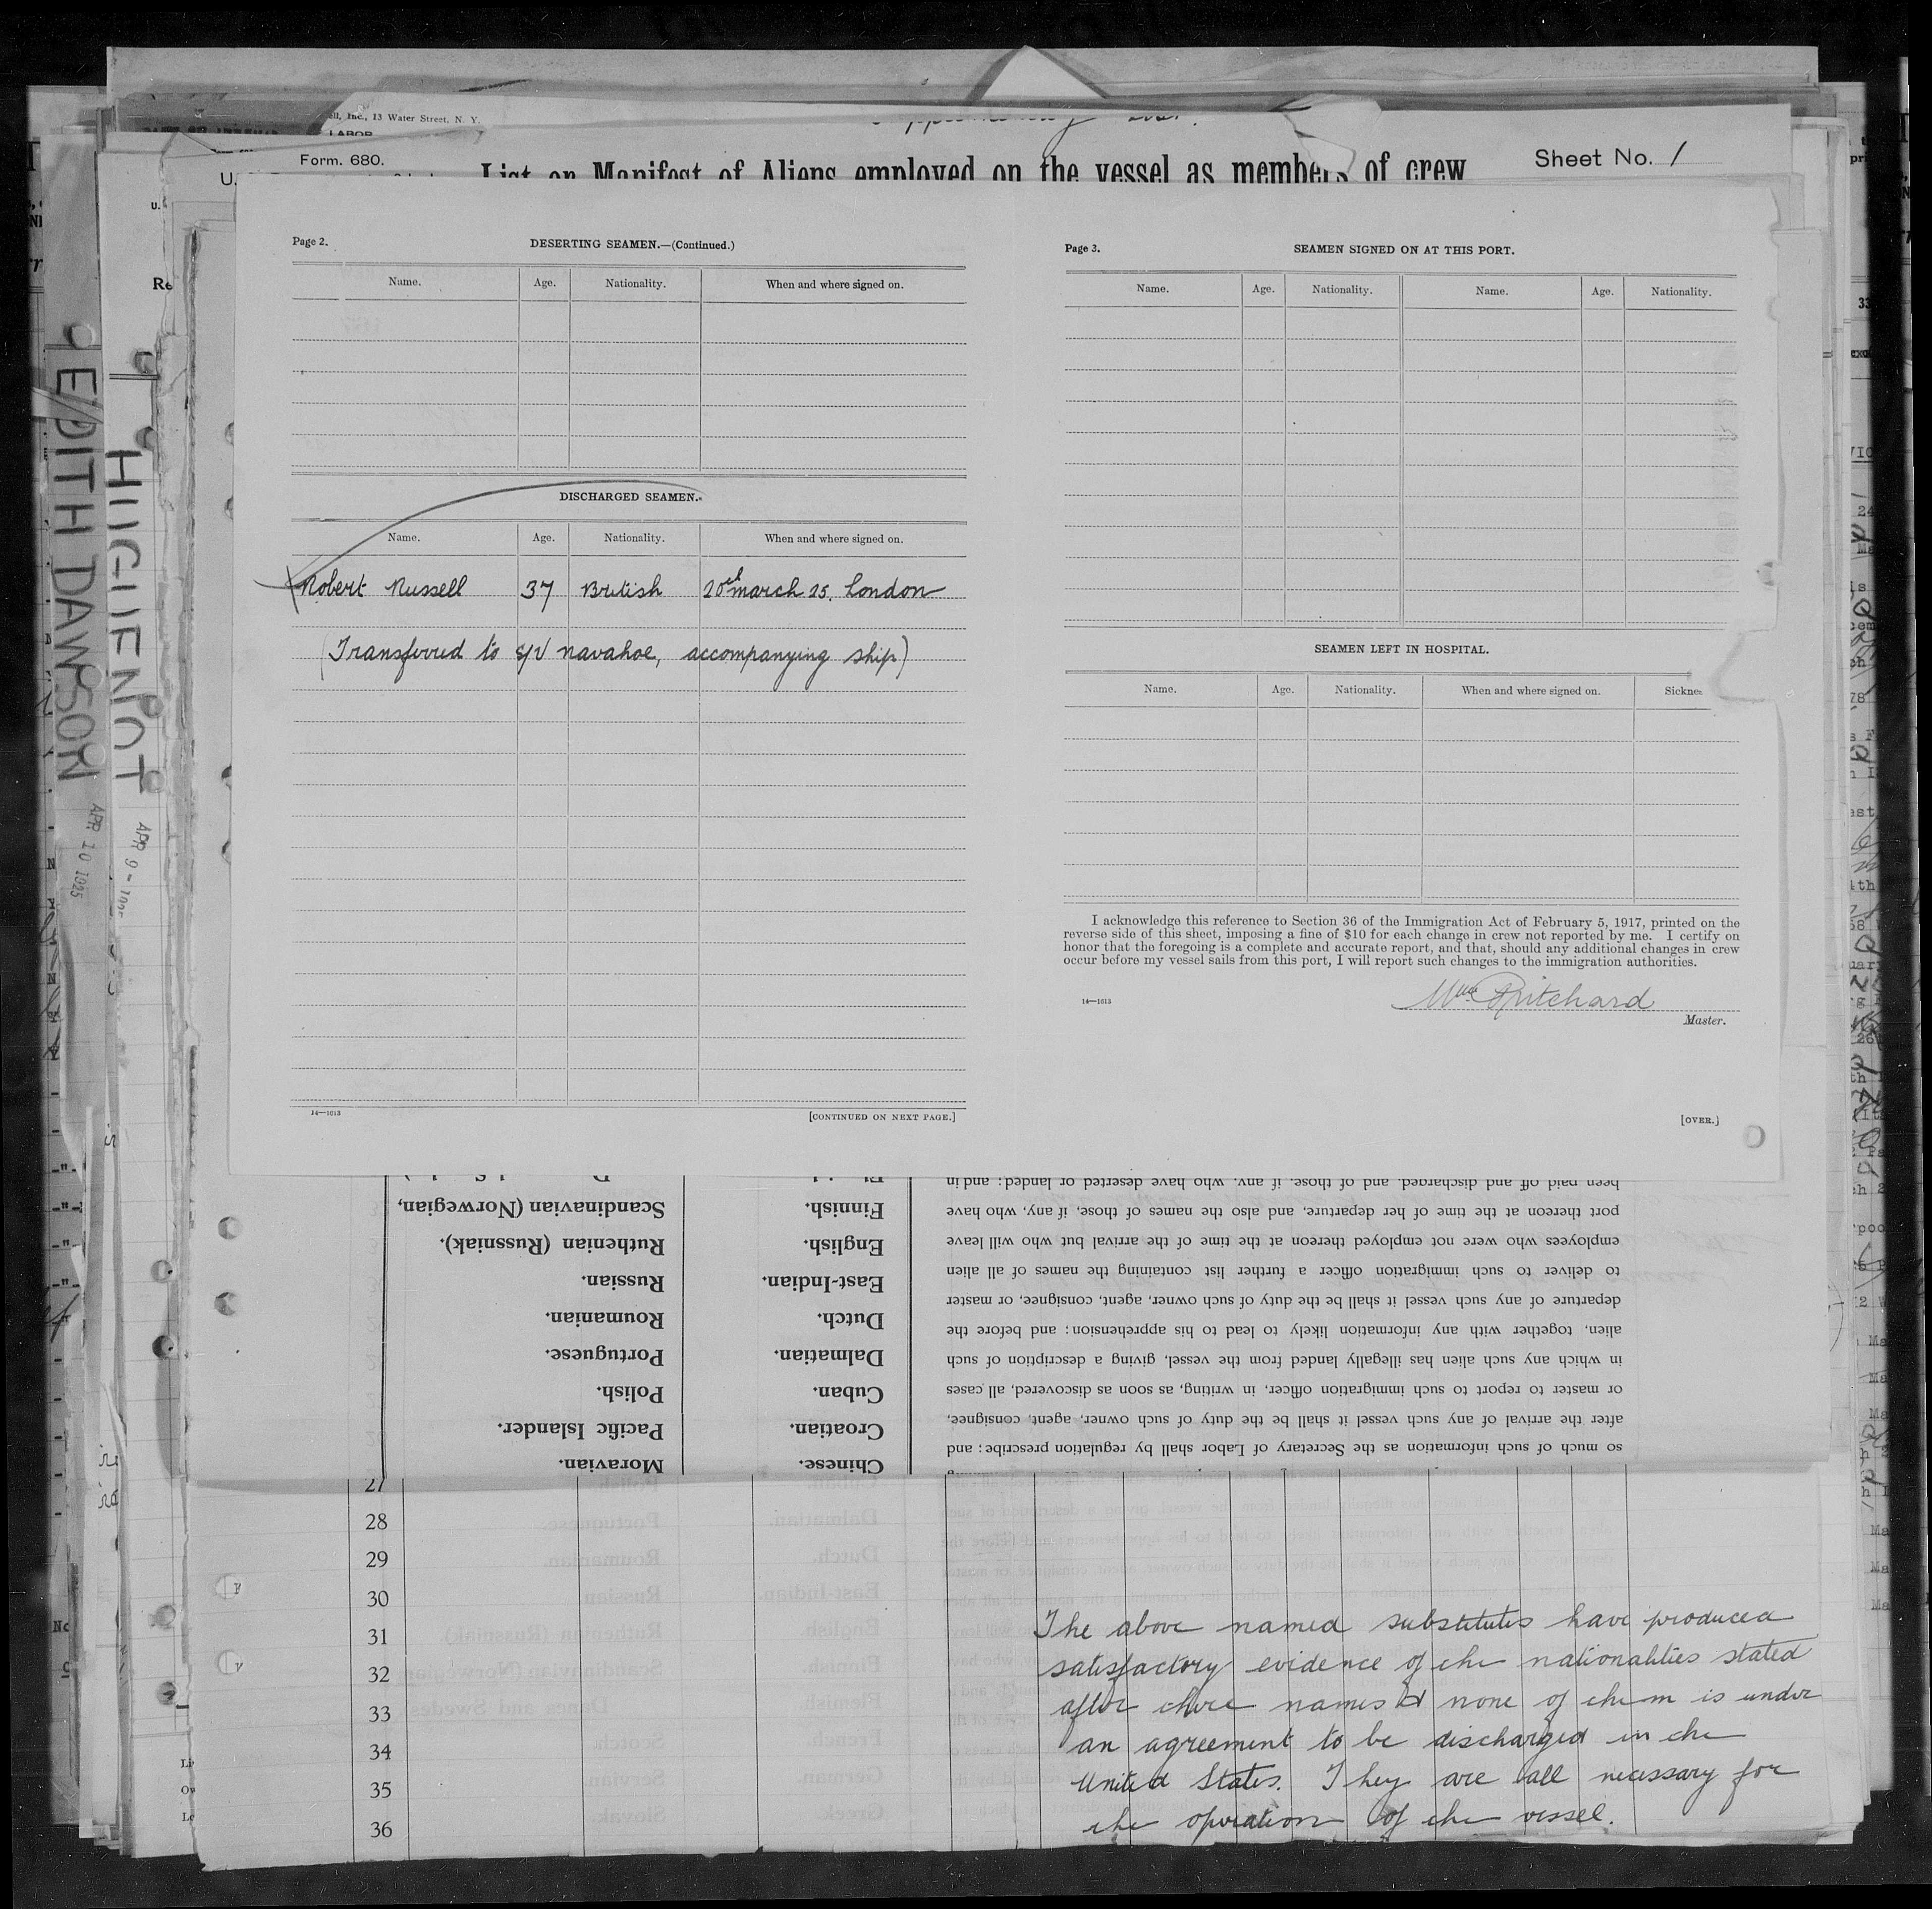 ell, Inc., 13 Water Street, N. Y.
LABOR
Form. 680.
List or Manifest of Aliens employed on the vessel as members of crew
Sheet No. 1
U.
Re
EDITH DAWSON
APR 10 1925
HUGUENOT
APR 9 -
Page 2.
DESERTING SEAMEN.—(Continued.)
Name. Age. Nationality. When and where signed on.
DISCHARGED SEAMEN.
Name. Age. Nationality. When and where signed on.
Robert Russell 37 British 20th march 25. London
(Transferred to S/V navahoe, accompanying ship)
14—1613
[CONTINUED ON NEXT PAGE.]
Page 3.
SEAMEN SIGNED ON AT THIS PORT.
Name. Age. Nationality. Name. Age. Nationality.
SEAMEN LEFT IN HOSPITAL.
Name. Age. Nationality. When and where signed on. Sicknes
I acknowledge this reference to Section 36 of the Immigration Act of February 5, 1917, printed on the
reverse side of this sheet, imposing a fine of $10 for each change in crew not reported by me. I certify on
honor that the foregoing is a complete and accurate report, and that, should any additional changes in crew
occur before my vessel sails from this port, I will report such changes to the immigration authorities.
Wm Pritchard
14—1613
Master.
[OVER.]
so much of such information as the Secretary of Labor shall by regulation prescribe; and
after the arrival of any such vessel it shall be the duty of such owner, agent, consignee,
or master to report to such immigration officer, in writing, as soon as discovered, all cases
in which any such alien has illegally landed from the vessel, giving a description of such
alien, together with any information likely to lead to his apprehension; and before the
departure of any such vessel it shall be the duty of such owner, agent, consignee, or master
to deliver to such immigration officer a further list containing the names of all alien
employees who were not employed thereon at the time of the arrival but who will leave
port thereon at the time of her departure, and also the names of those, if any, who have
been paid off and discharged, and of those, if any, who have deserted or landed; and in
Chinese.
Croatian.
Cuban.
Dalmatian.
Dutch.
East-Indian.
English.
Finnish.
Moravian.
Pacific Islander.
Polish.
Portuguese.
Roumanian.
Russian.
Ruthenian (Russniak).
Scandinavian (Norwegian,
27
28
29
30
31
32
33
34
35
36
The above named substitutes have produced
satisfactory evidence of the nationalities stated
after their names & none of them is under
an agreement to be discharged in the
United States. They are all necessary for
the operation of the vessel.